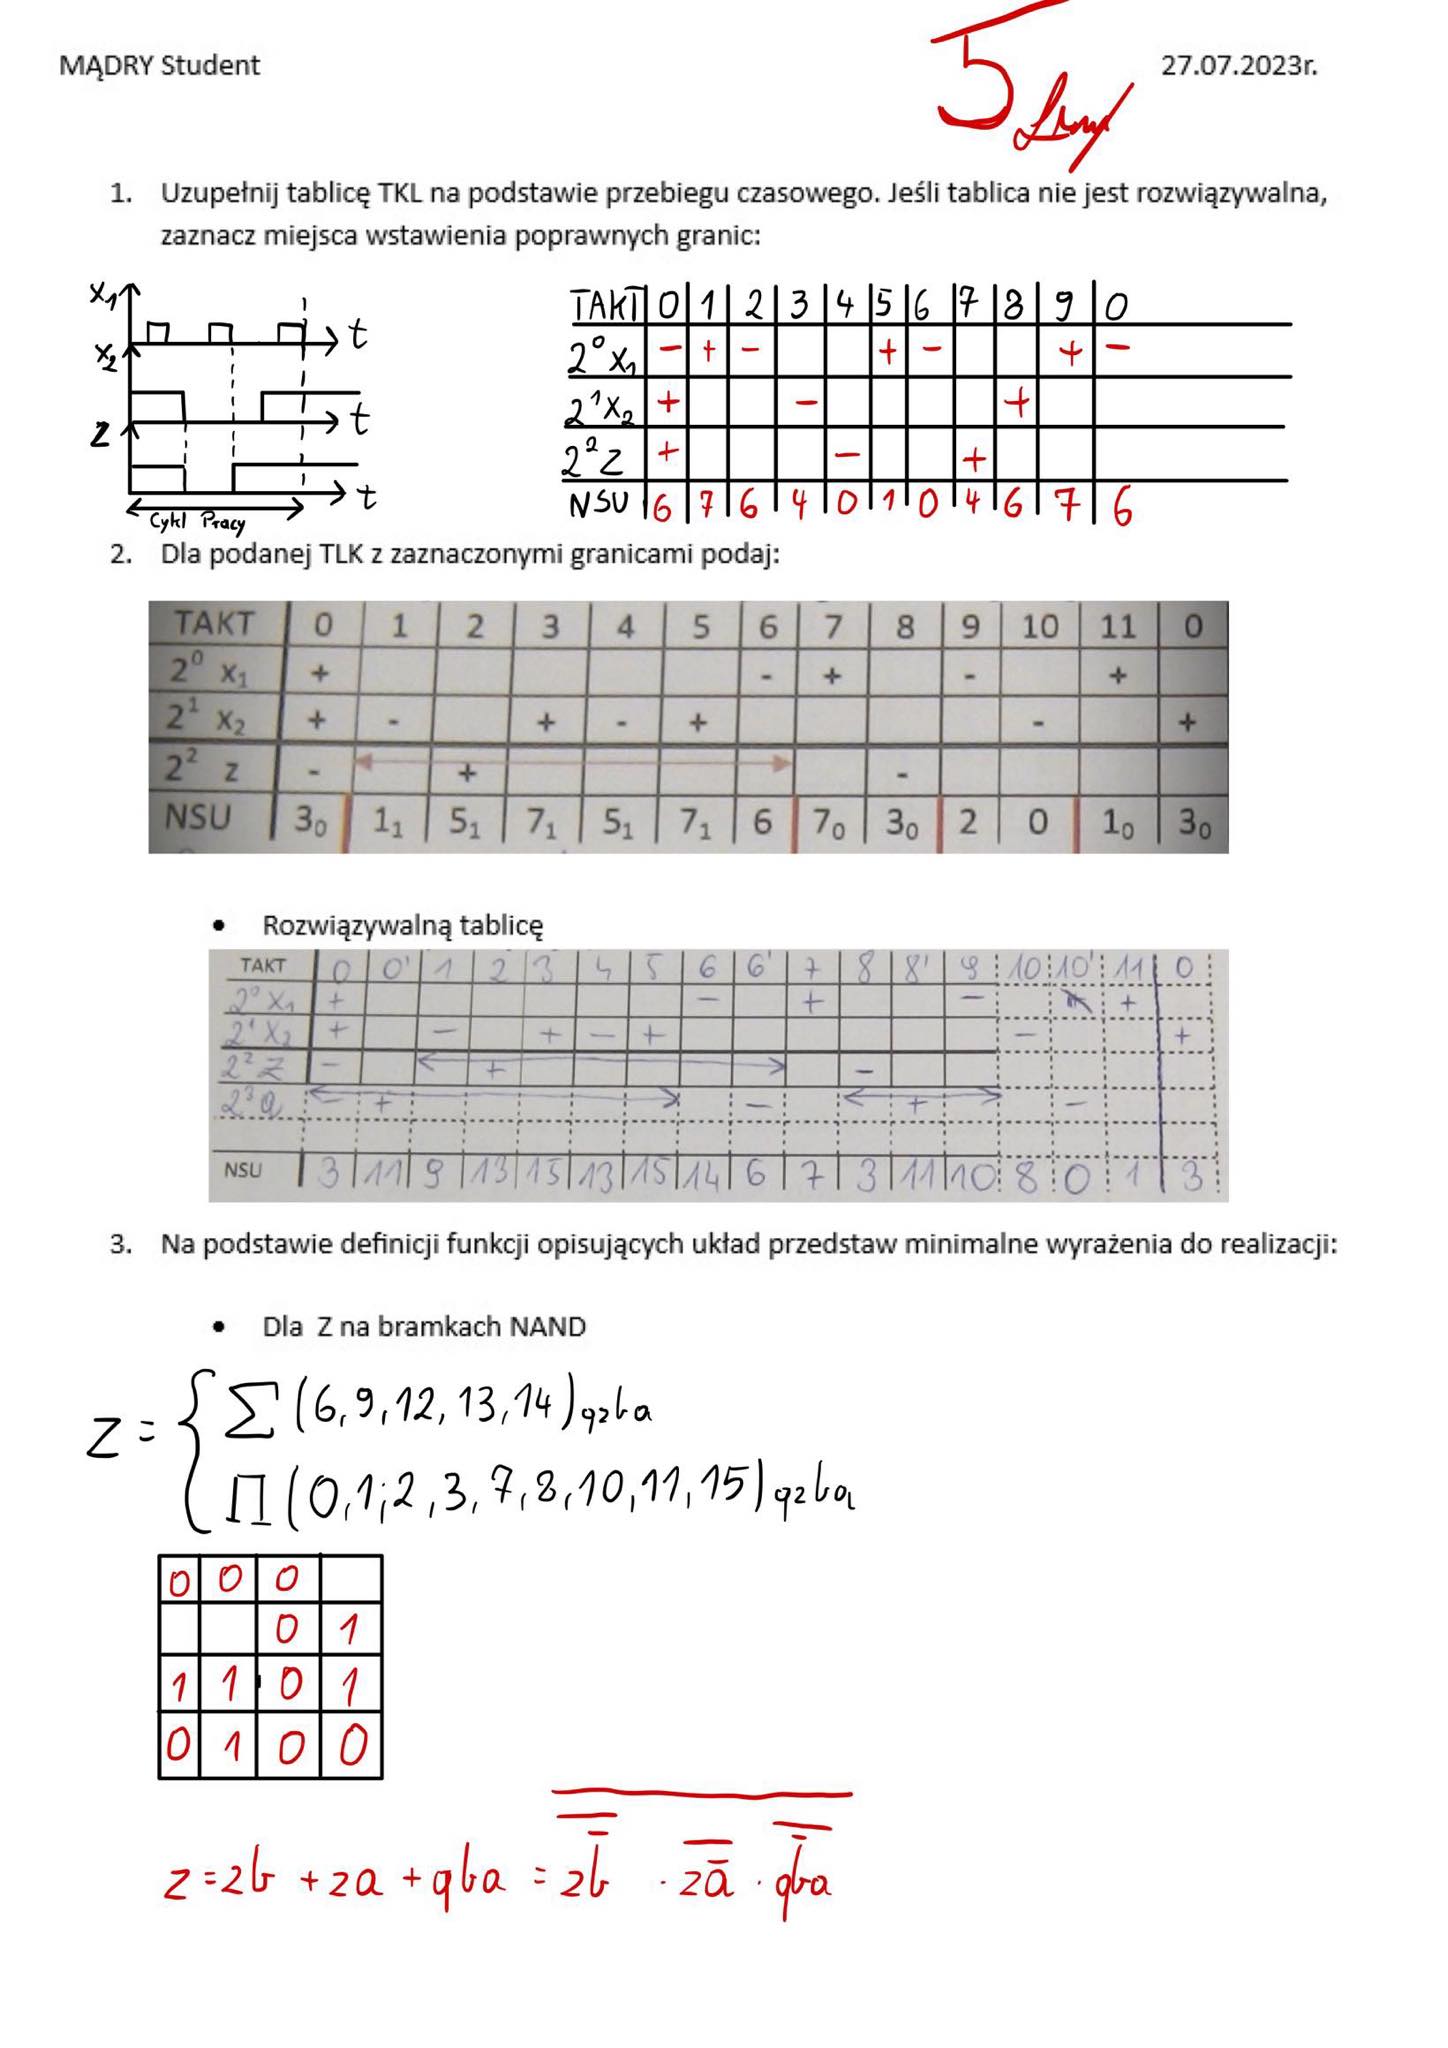 MĄDRY Student 27.07.2023r.
5
1. Uzupełnij tablicę TKL na podstawie przebiegu czasowego. Jeśli tablica nie jest rozwiązywalna,
zaznacz miejsca wstawienia poprawnych granic:
x₁ t
x₂ t
z t
Cykl Pracy
TAKT 0 1 2 3 4 5 6 7 8 9 0
2⁰ x₁ - + - + - + -
2¹ x₂ + - +
2² z + - +
NSU 6 7 6 4 0 1 0 4 6 7 6
2. Dla podanej TLK z zaznaczonymi granicami podaj:
TAKT 0 1 2 3 4 5 6 7 8 9 10 11 0
2⁰ x₁ + - + - +
2¹ x₂ + - + - + - +
2² z - + -
NSU 3₀ 1₁ 5₁ 7₁ 5₁ 7₁ 6 7₀ 3₀ 2 0 1₀ 3₀
• Rozwiązywalną tablicę
TAKT 0 0' 1 2 3 4 5 6 6' 7 8 8' 9 10 10' 11 0
2⁰ x₁ + - + - +
2¹ x₂ + - + - + - +
2² z - + -
2³ Q + - + -
NSU 3 11 9 13 15 13 15 14 6 7 3 11 10 8 0 1 3
3. Na podstawie definicji funkcji opisujących układ przedstaw minimalne wyrażenia do realizacji:
• Dla Z na bramkach NAND
z = { ∑ (6, 9, 12, 13, 14) qzba
∏ (0, 1, 2, 3, 7, 8, 10, 11, 15) qzba
0 0 0
0 1
1 1 0 1
0 1 0 0
z = zb + za + qba = zb̅ · za̅ · qb̅a